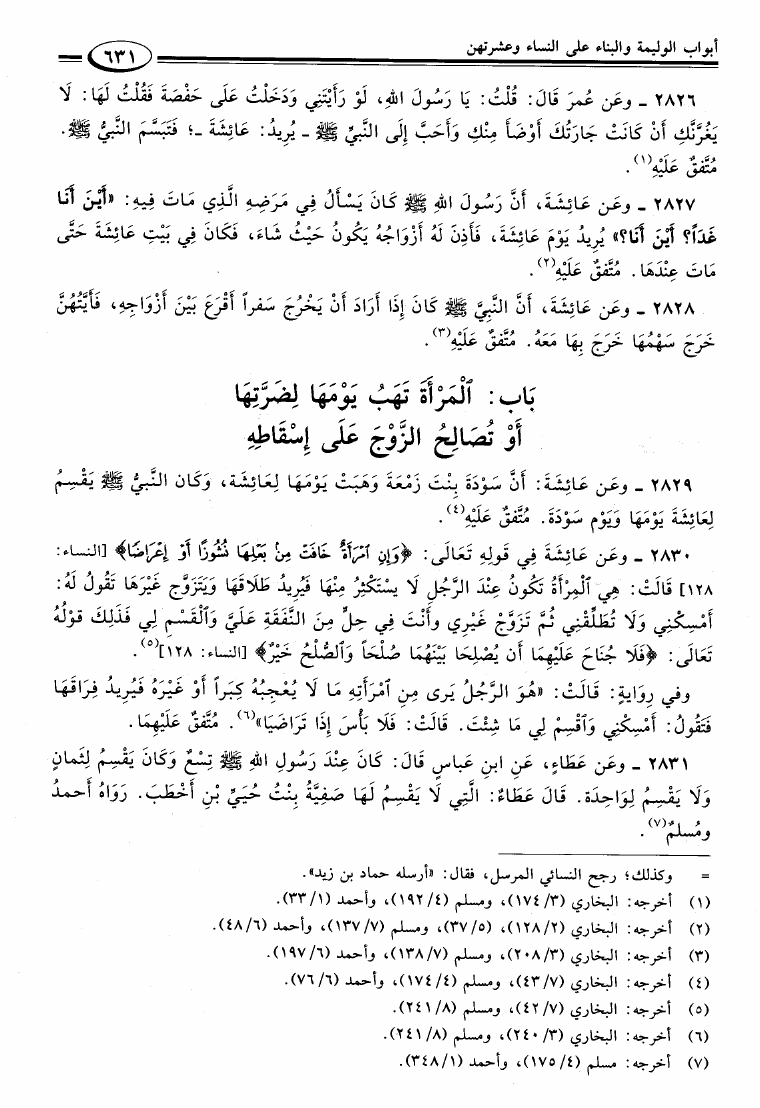 أبواب الوليمة والبناء على النساء وعشرتهن
٦٣١
٢٨٢٦ ـ وعَن عُمرَ قَالَ: قُلْتُ: يَا رَسُولَ اللهِ، لَوْ رَأَيْتَنِي وَدَخَلْتُ عَلَى حَفْصَةَ فَقُلْتُ لَهَا: لَا
يَغُرَّنَّكِ أَنْ كَانَتْ جَارَتُكَ أَوْضَأَ مِنْكِ وَأَحَبَّ إِلَى النَّبيِّ ﷺ ـ يُرِيدُ: عَائِشَةَ ـ؛ فَتَبَسَّمَ النَّبيُّ ﷺ.
مُتَّفقٌ عَلَيْهِ(١).
٢٨٢٧ ـ وعَن عَائِشَةَ، أَنَّ رَسُولَ اللهِ ﷺ كَانَ يَسْأَلُ فِي مَرَضِهِ الَّذِي مَاتَ فِيهِ: «أَيْنَ أَنَا
غَدَاً؟ أَيْنَ أَنَا؟» يُرِيدُ يَوْمَ عَائِشَةَ، فَأَذِنَ لَهُ أَزْوَاجُهُ يَكُونُ حَيْثُ شَاءَ، فَكَانَ فِي بَيْتِ عَائِشَةَ حَتَّى
مَاتَ عِنْدَهَا. مُتَّفقٌ عَلَيْهِ(٢).
٢٨٢٨ ـ وعَن عَائِشَةَ، أَنَّ النَّبيَّ ﷺ كَانَ إِذَا أَرَادَ أَنْ يَخْرُجَ سَفَراً أَقْرَعَ بَيْنَ أَزْوَاجِهِ، فَأَيَّتُهُنَّ
خَرَجَ سَهْمُهَا خَرَجَ بِهَا مَعَهُ. مُتَّفقٌ عَلَيْهِ(٣).
بَاب: ٱلْمَرْأَةُ تَهَبُ يَوْمَهَا لِضَرَّتِهَا
أَوْ تُصَالِحُ الزَّوْجَ عَلَى إِسْقَاطِهِ
٢٨٢٩ ـ وعَن عَائِشَةَ: أَنَّ سَوْدَةَ بِنْتَ زَمْعَةَ وَهَبَتْ يَوْمَهَا لِعَائِشَة، وَكَان النَّبيُّ ﷺ يَقْسِمُ
لِعَائِشَةَ يَوْمَهَا وَيَوْم سَوْدَةَ. مُتَّفقٌ عَلَيْهِ(٤).
٢٨٣٠ ـ وعَن عَائِشَةَ فِي قَولِهِ تَعَالَى: ﴿وَإِنِ ٱمْرَأَةٌ خَافَتْ مِنۢ بَعْلِهَا نُشُوزًا أَوْ إِعْرَاضًا﴾ [النساء:
١٢٨] قَالَتْ: هِيَ ٱلْمِرْأَةُ تَكُونُ عِنْدَ الرَّجُلِ لَا يَسْتَكْثِرُ مِنْهَا فَيُرِيدُ طَلَاقَهَا وَيَتَزَوَّج غَيْرَهَا تَقُولُ لَهُ:
أَمْسِكْنِي وَلَا تُطَلِّقْنِي ثُمَّ تَزَوَّجْ غَيْرِي وأَنْتَ فِي حِلٍّ مِنَ النَّفَقَةِ عَلَيَّ وَٱلْقَسْمِ لِي فَذَلِكَ قوْلُهُ
تَعَالَى: ﴿فَلَا جُنَاحَ عَلَيْهِمَا أَن يُصْلِحَا بَيْنَهُمَا صُلْحَاً وَٱلصُّلْحُ خَيْرٌ﴾ [النساء: ١٢٨](٥).
وفي رِوَايَةٍ: قَالَتْ: «هُوَ الرَّجُلُ يَرى مِنِ ٱمْرَأَتِهِ مَا لَا يُعْجِبُهُ كِبَراً أَوْ غَيْرَهُ فَيُرِيدُ فِرَاقَهَا
فَتَقُولُ: أَمْسِكْنِي وَٱقْسِمْ لِي مَا شِئْتَ. قَالَتْ: فَلَا بَأْسَ إِذَا تَرَاضَيَا»(٦). مُتَّفقٌ عَلَيْهِمَا.
٢٨٣١ ـ وعَن عَطَاءٍ، عَنِ ابنِ عَباسٍ قَالَ: كَانَ عِنْدَ رَسُولِ اللهِ ﷺ تِسْعٌ وَكَانَ يَقْسِمُ لِثَمَانٍ
وَلَا يَقْسِمُ لِوَاحِدَةٍ. قَالَ عَطَاءٌ: الَّتِي لَا يَقْسِمُ لَهَا صَفِيَّةُ بِنْتُ حُيَيِّ بْنِ أَخْطَبَ. رَوَاهُ أَحمدُ
ومُسلمٌ(٧).
= وكذلك؛ رجح النسائي المرسل، فقال: «أرسله حماد بن زيد».
(١) أخرجه: البخاري (٣/ ١٧٤)، ومسلم (٤/ ١٩٢)، وأحمد (١/ ٣٣).
(٢) أخرجه: البخاري (٢/ ١٢٨)، (٥/ ٣٧)، ومسلم (٧/ ١٣٧)، وأحمد (٦/ ٤٨).
(٣) أخرجه: البخاري (٣/ ٢٠٨)، ومسلم (٧/ ١٣٨)، وأحمد (٦/ ١٩٧).
(٤) أخرجه: البخاري (٧/ ٤٣)، ومسلم (٤/ ١٧٤)، وأحمد (٦/ ٧٦).
(٥) أخرجه: البخاري (٧/ ٤٢)، ومسلم (٨/ ٢٤١).
(٦) أخرجه: البخاري (٣/ ٢٤٠)، ومسلم (٨/ ٢٤١).
(٧) أخرجه: مسلم (٤/ ١٧٥)، وأحمد (١/ ٣٤٨).